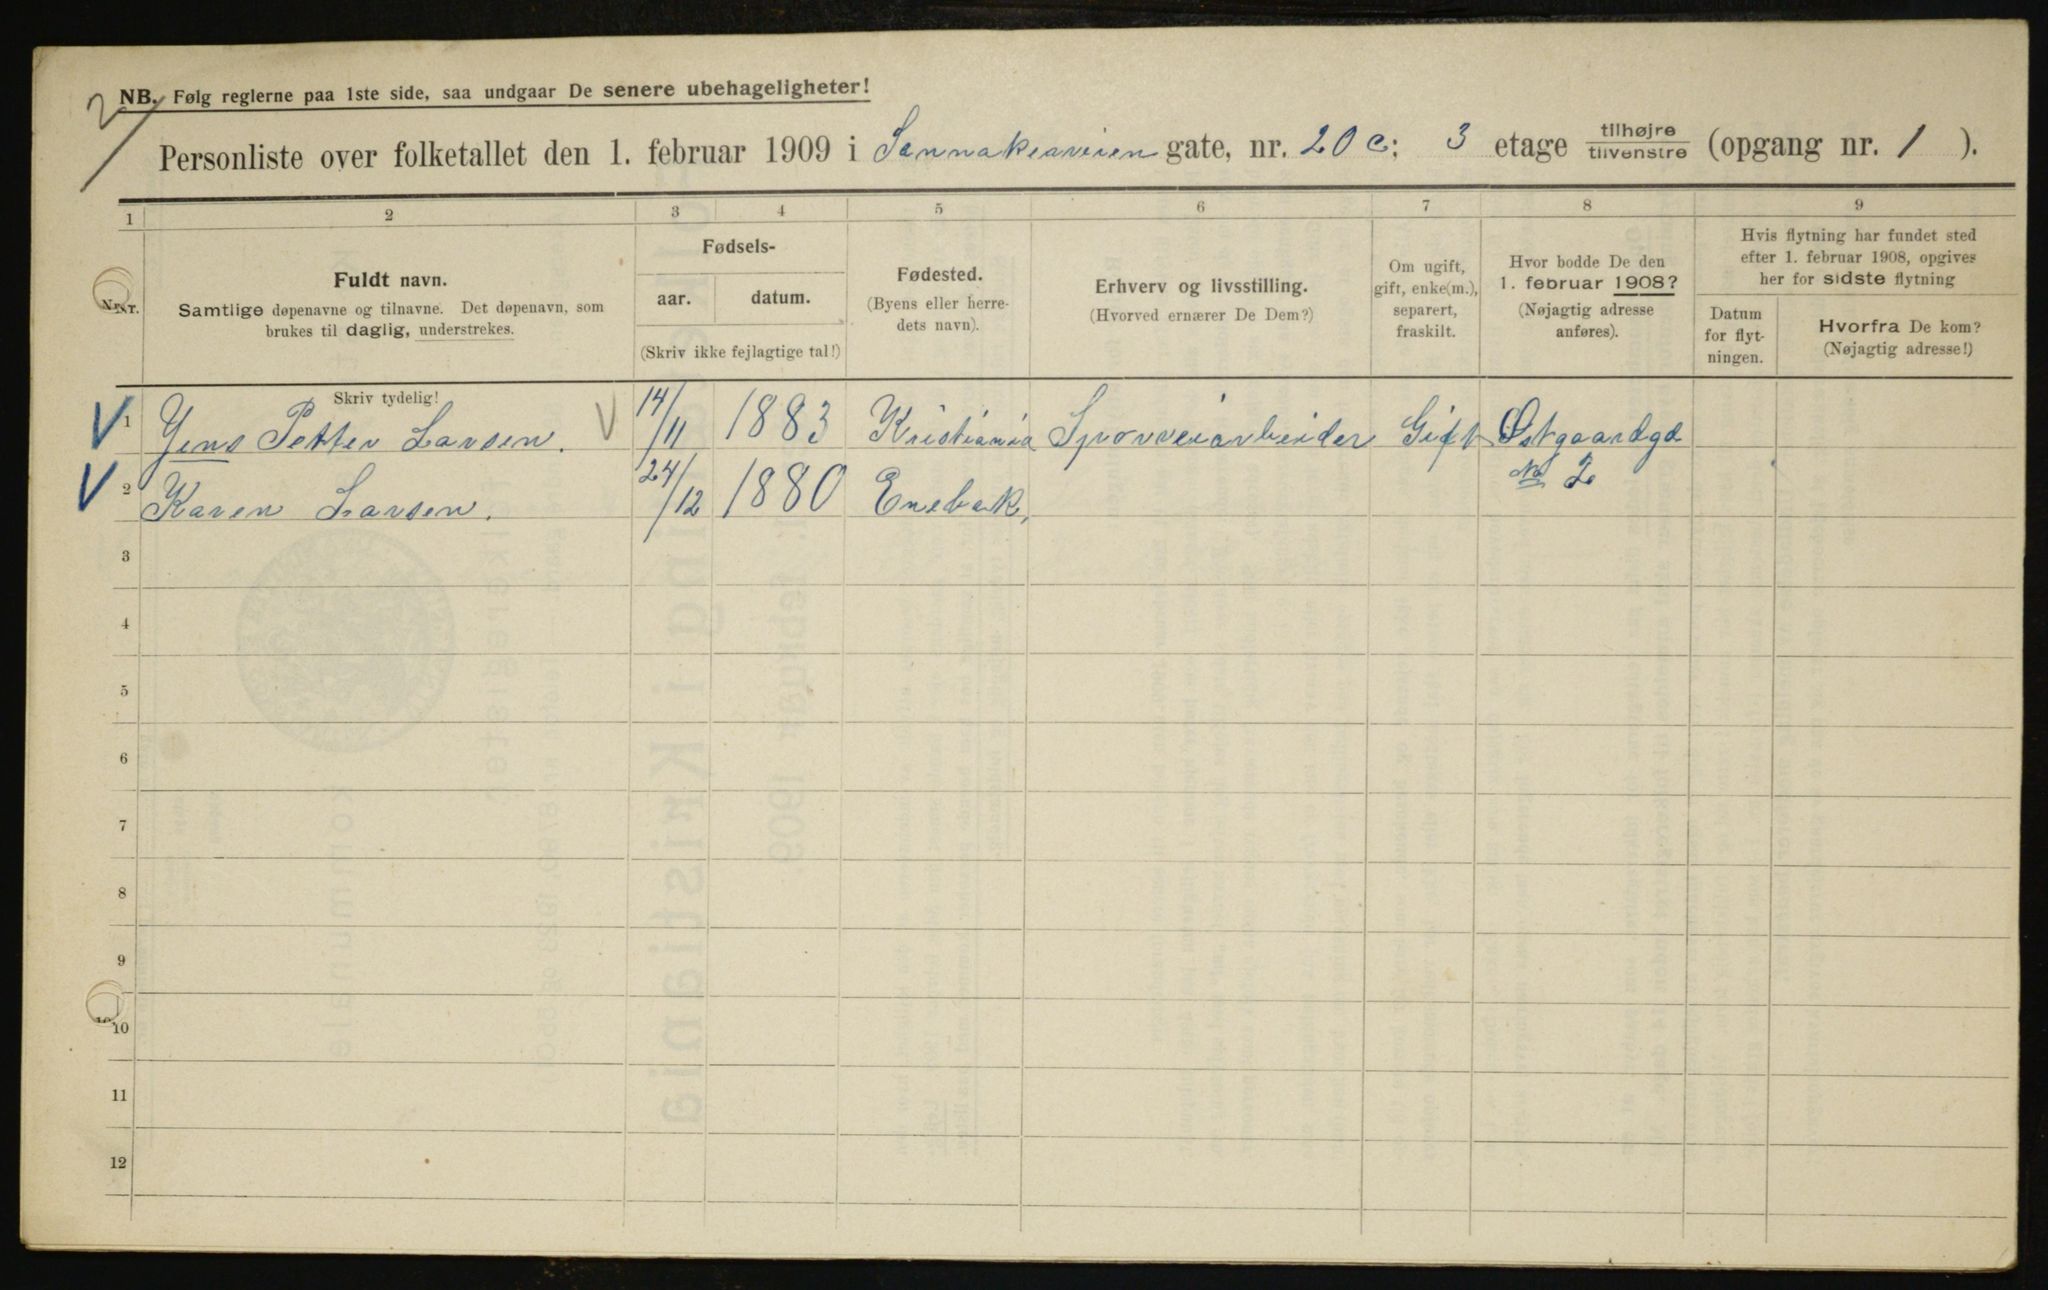 2
NB. Følg reglerne paa 1ste side, saa undgaar De senere ubehageligheter!
Personliste over folketallet den 1. februar 1909 i Sannakraveien gate, nr. 20 c; 3 etage tilhøjre/tilvenstre (opgang nr. 1 ).
1 2 3 4 5 6 7 8 9
Nr. Fuldt navn.
Samtlige døpenavne og tilnavne. Det døpenavn, som
brukes til daglig, understrekes.
Fødsels-
aar. datum.
(Skriv ikke fejlagtige tal!)
Fødested.
(Byens eller herre-
dets navn).
Erhverv og livsstilling.
(Hvorved ernærer De Dem?)
Om ugift,
gift, enke(m.),
separert,
fraskilt.
Hvor bodde De den
1. februar 1908?
(Nøjagtig adresse
anføres).
Hvis flytning har fundet sted
efter 1. februar 1908, opgives
her for sidste flytning
Datum
for flyt-
ningen.
Hvorfra De kom?
(Nøjagtig adresse!)
Skriv tydelig!
1 Yens Petter Larsen. 14/11 1883 Kristiania Sporveiarbeider Gift Østgaardgd
No 2
2 Karen Larsen. 24/12 1880 Enebak,
3
4
5
6
7
8
9
10
11
12